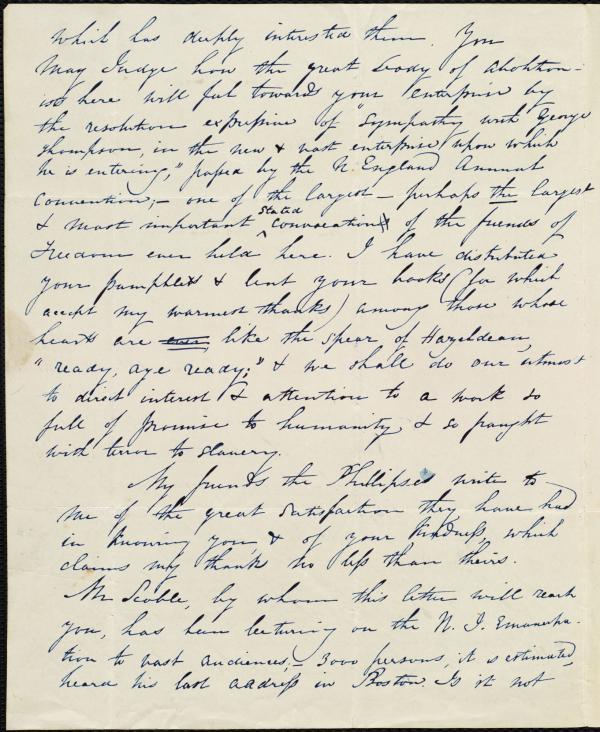 which has deeply interested them. You
may Judge how the great body of abolition-
ists here will feel towards your enterprise by
the resolution expressive of "Sympathy with George
Thompson, in the new & vast enterprise upon which
he is entering," passed by the N. England Annual
Convention;— one of the largest — perhaps the largest
& most important stated convocation of the friends of
Freedom ever held here. I have distributed
your pamphlets & lent your books (for which
accept my warmest thanks) among those whose
hearts are ever, like the spear of Hazeldean,
"ready, aye ready;" & we shall do our utmost
to direct interest & attention to a work so
full of promise to humanity & so fraught
with terror to slavery.
My friends the Phillipses write to
me of the great satisfaction they have had
in knowing you & of your kindness, which
claims my thanks no less than theirs.
Mr Scoble, by whom this letter will reach
you, has been lecturing on the W. I. Emancipa-
tion to vast audiences;— 3000 persons, it is estimated,
heard his last address in Boston. Is it not